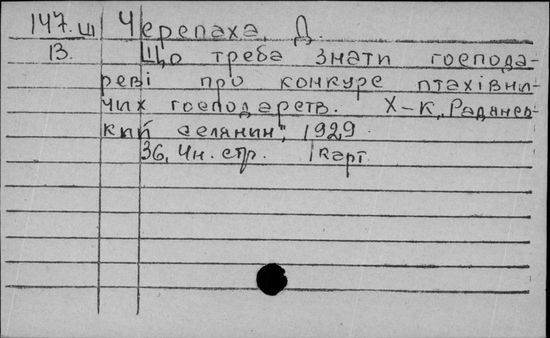 147.ш Черепаха, Д.
13. Що треба знати господа-
реві про конкурс птахівни-
чих господарств. Х-К, „Радянсь-
кий селянин", 1929.
36, 4н. стр. 1 карт.